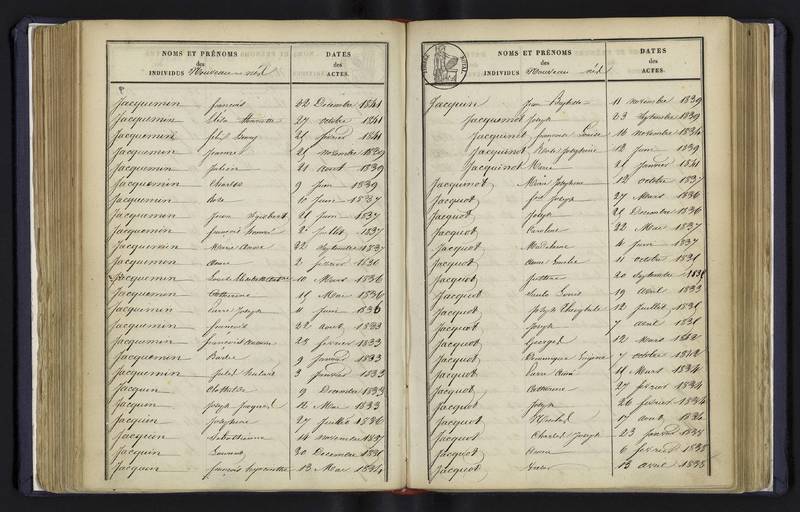 NOMS ET PRÉNOMS
des
INDIVIDUS Nouveau-né
DATES
des
ACTES.
Jacquemin françois 22 Décembre 1841
Jacquemin 27 octobre 1841
Jacquemin 21 février 1841
Jacquemin Jeannet 21 novembre 1839
Jacquemin Julien 21 aout 1839
Jacquemin Charles 9 Juin 1839
Jacquemin Rose 10 Juin 1837
Jacquemin Jean 21 Juin 1837
Jacquemin françois 2 Juillet 1837
Jacquemin Marie Anne 22 Septembre 1837
Jacquemin Anne 2 février 1836
Jacquemin 10 Mars 1836
Jacquemin Catherine 19 Mai 1836
Jacquemin Pierre Joseph 11 Juin 1836
Jacquemin françois 22 aout 1833
Jacquemin françois 23 février 1833
Jacquemin Barbe 9 Janvier 1833
Jacquemin 3 Janvier 1833
Jacquin Clothilde 9 Décembre 1833
Jacquin Joseph Jacques 12 Mai 1833
Jacquin Josephine 27 Juillet 1836
Jacquin Sébastienne 14 novembre 1837
Jacquin Laurent 30 Décembre 1831
Jacquin françois hyacinthe 13 Mai 1834
NOMS ET PRÉNOMS
des
INDIVIDUS Nouveau né
DATES
des
ACTES.
Jacquin Jean Baptiste 11 novembre 1839
Jacquemot Joseph 23 Septembre 1839
Jacquinet françoise Louise 16 novembre 1834
Jacquinot Rose Josephine 12 Juin 1839
Jacquinot Marie 21 Janvier 1841
Jacquemot Marie Josephine 12 octobre 1837
Jacquot Joseph 27 Mars 1836
Jacquot Joseph 21 Décembre 1836
Jacquot Caroline 22 Mai 1837
Jacquot Madeleine 4 Juin 1837
Jacquot Anne Emelie 11 octobre
Jacquot Justine 20 Septembre
Jacquot Louis 19 avril 1833
Jacquot Joseph Théophile 12 Juillet
Jacquot Joseph 7 avril
Jacquot Georges 12 Mars 1842
Jacquot Dominique Eugène 7 octobre 1842
Jacquot Pierre 11 Mars 1834
Jacquot Catherine 27 février 1834
Jacquot Joseph 26 février 1834
Jacquot Nicolas 17 aout 1834
Jacquot Charles Joseph 23 Janvier 1835
Jacquot Anne 6 février 1835
Jacquot 13 avril 1835